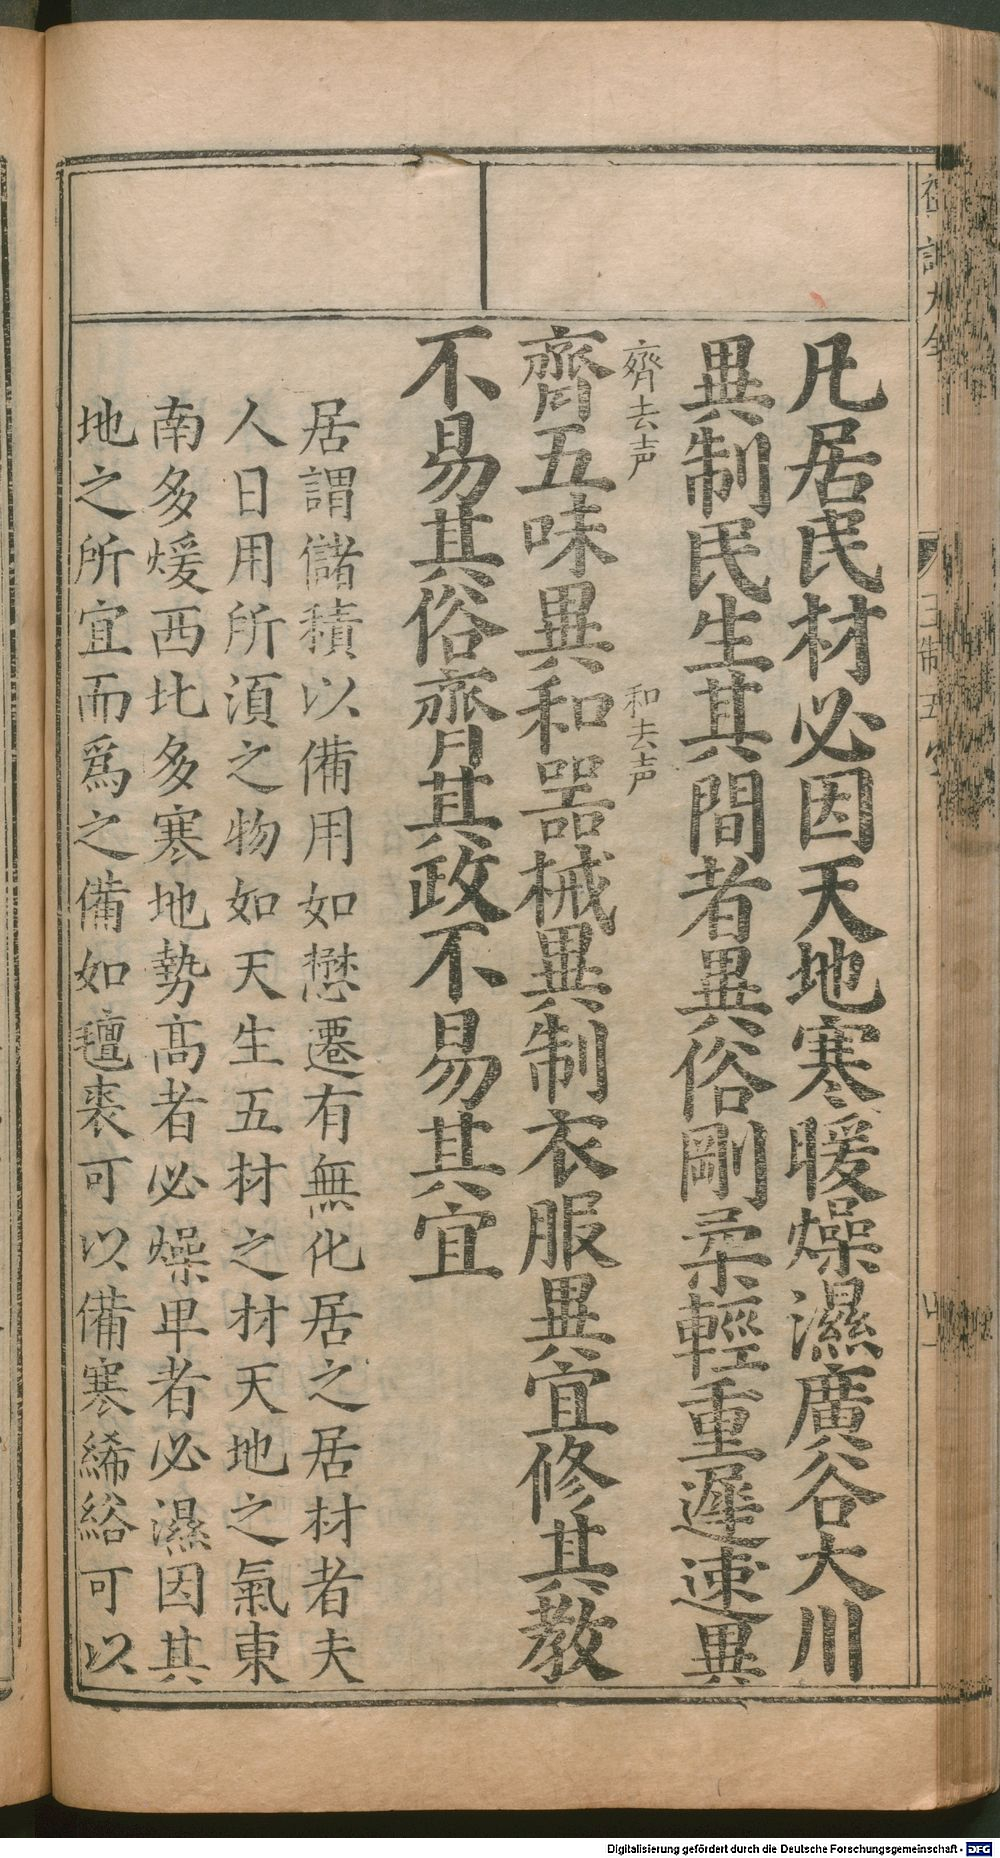 凡居民材必因天地寒暖燥濕廣谷大川
異制民生其間者異俗剛柔輕重遲速異
齊去声
和去声
齊五味異和器械異制衣服異宜修其教
不易其俗齊其政不易其宜
居謂儲積以備用如懋遷有無化居之居材者夫
人日用所湏之物如天生五材之材天地之氣東
南多煖西北多寒地勢高者必燥卑者必濕因其
地之所宜而爲之備如氊裘可以備寒絺綌可以
Digitalisierung gefördert durch die Deutsche Forschungsgemeinschaft - DFG